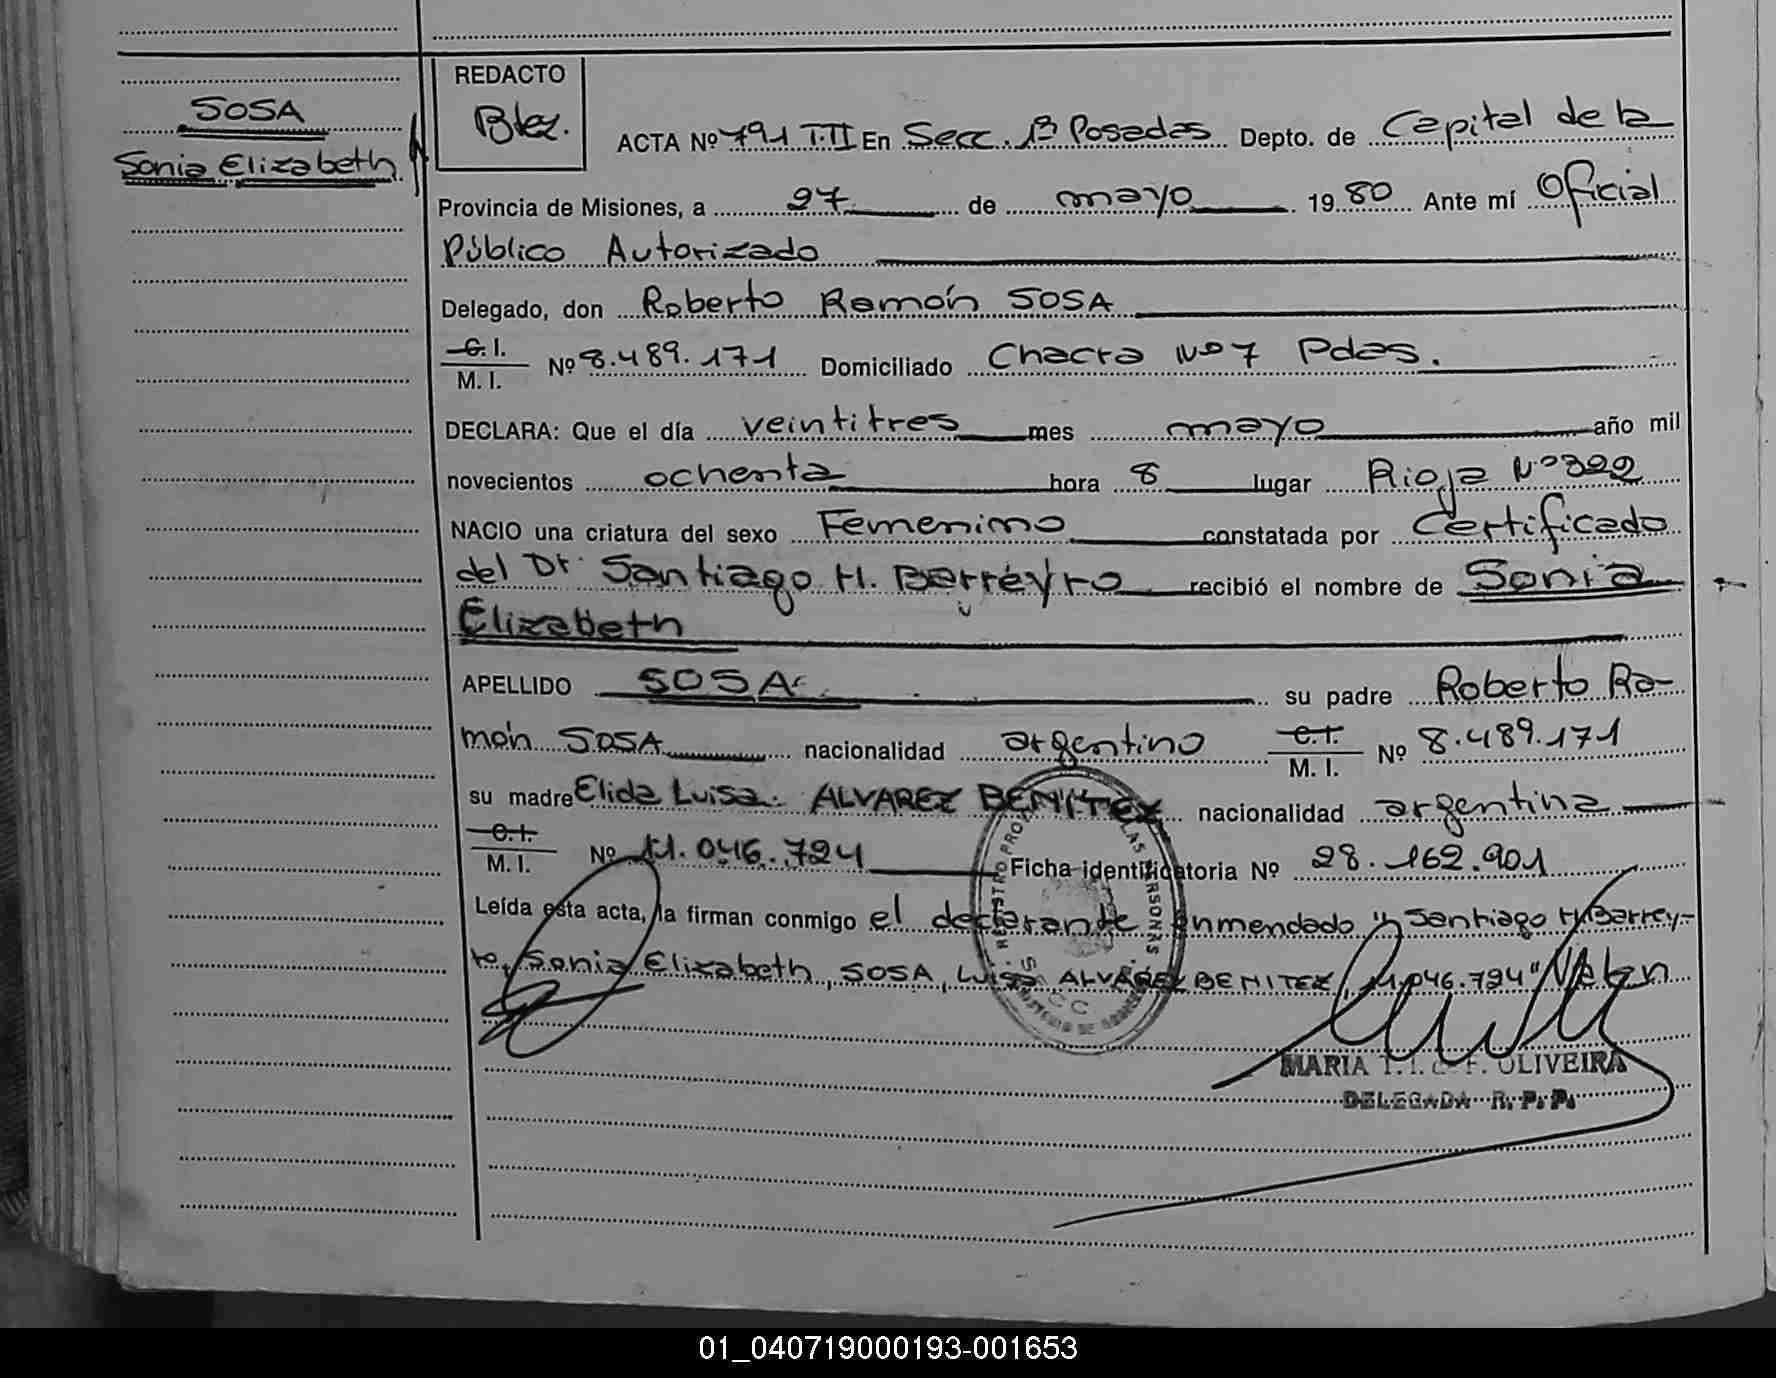 SOSA
Sonia Elizabeth
REDACTO
Btez.
ACTA Nº 791 T.II En Secc. 1ª Posadas Depto. de Capital de la
Provincia de Misiones, a 27 de mayo 1980 Ante mí Oficial
Público Autorizado
Delegado, don Roberto Ramón SOSA
C. I.
M. I. Nº 8.489.171 Domiciliado Chacra Nº 7 Pdas.
DECLARA: Que el día veintitres mes mayo año mil
novecientos ochenta hora 8 lugar Rioja Nº 322
NACIO una criatura del sexo Femenino constatada por Certificado
del Dr. Santiago H. Barreyro recibió el nombre de Sonia
Elizabeth
APELLIDO SOSA su padre Roberto Ra-
món SOSA nacionalidad argentino C. I. M. I. Nº 8.489.171
su madre Elida Luisa ALVAREZ BENITEZ nacionalidad argentina
C. I.
M. I. Nº 11.046.724 Ficha identificatoria Nº 28.162.901
Leída esta acta, la firman conmigo el declarante enmendado "Santiago H. Barrey-
ro, Sonia Elizabeth, SOSA, Luisa ALVAREZ BENITEZ, 11.046.724" Valen
MARIA OLIVEIRA
DELEGADA R. P. P.
01_040719000193-001653